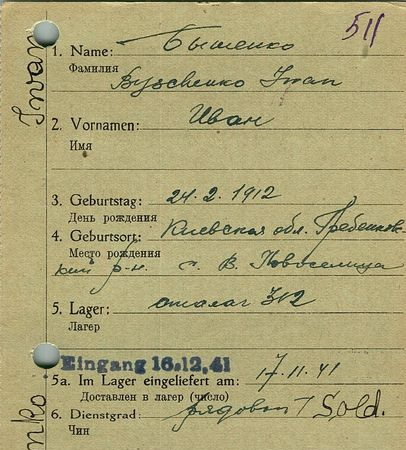 511
1. Name: Бышенко
Фамилия
Iwan
2. Vornamen: Иван
Имя
3. Geburtstag: 24.2.1912
День рождения
4. Geburtsort: Киевская обл. Гребенков-
Место рождения
кий р-н. с. В. Новоселица
5. Lager: сталаг 312
Лагер
Eingang 16.12.41
5a. Im Lager eingeliefert am: 17.11.41
Доставлен в лагер (число)
6. Dienstgrad: рядовой / Sold.
Чин
nko